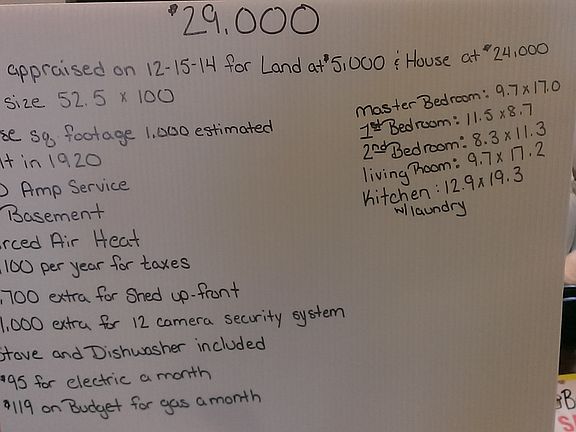 $29,000
appraised on 12-15-14 for Land at $5,000 & House at $24,000
size 52.5 x 100
se sq. footage 1,000 estimated
lt in 1920
Amp Service
Basement
rced Air Heat
100 per year for taxes
700 extra for Shed up-front
1,000 extra for 12 camera security system
tove and Dishwasher included
$95 for electric a month
$119 on Budget for gas a month
Master Bedroom: 9.7 x 17.0
1st Bedroom: 11.5 x 8.7
2nd Bedroom: 8.3 x 11.3
living Room: 9.7 x 17.2
Kitchen: 12.9 x 19.3
w/laundry